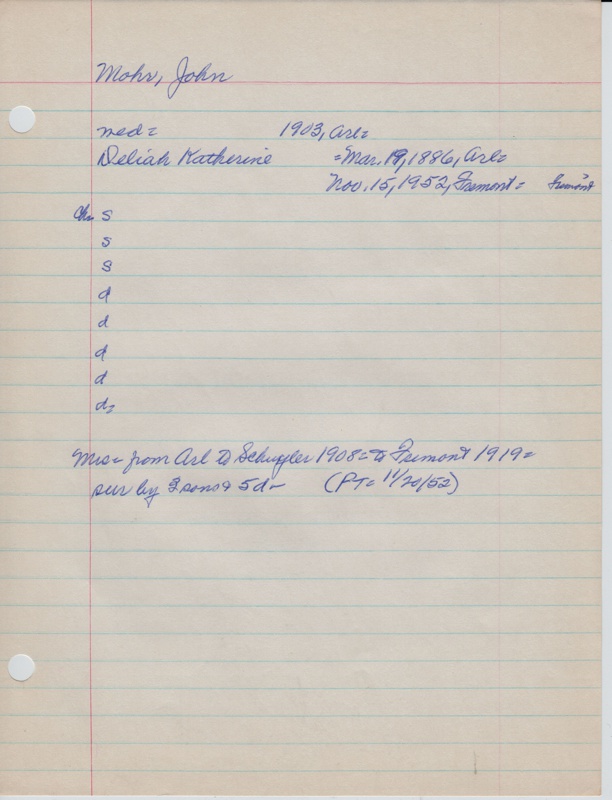 Mohr, John
med= 1903, Arl=
Deliah Katherine =Mar. 19, 1886, Arl=
Nov. 15, 1952, Fremont= Fremont
Ch. S
S
S
d
d
d
d
d=
Mrs= from Arl to Schuyler 1908= to Fremont 1919=
sur by 3 sons & 5d- (PT= 11/20/52)